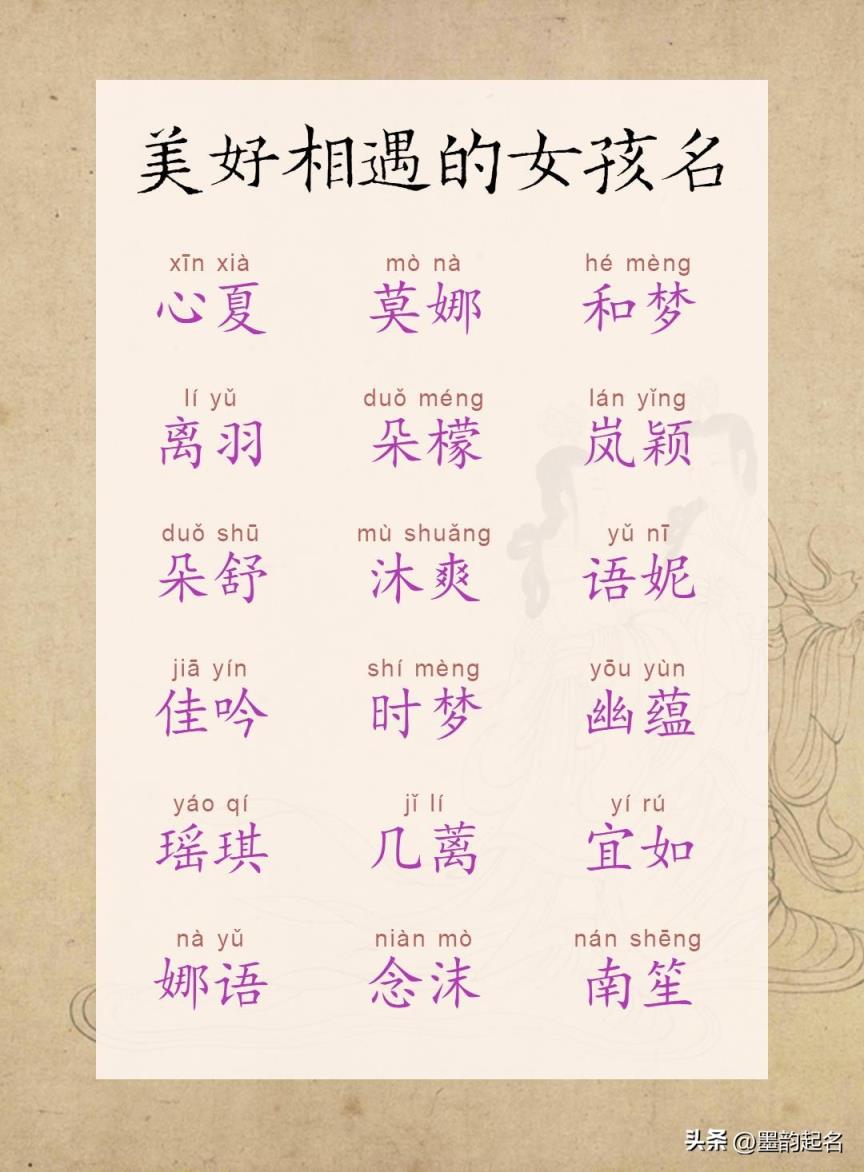 美好相遇的女孩名
xīn xià mò nà hé mèng
心夏 莫娜 和梦
lí yǔ duǒ méng lán yǐng
离羽 朵檬 岚颖
duǒ shū mù shuǎng yǔ nī
朵舒 沐爽 语妮
jiā yín shí mèng yōu yùn
佳吟 时梦 幽蕴
yáo qí jǐ lí yí rú
瑶琪 几蓠 宜如
nà yǔ niàn mò nán shēng
娜语 念沫 南笙
头条 @墨韵起名